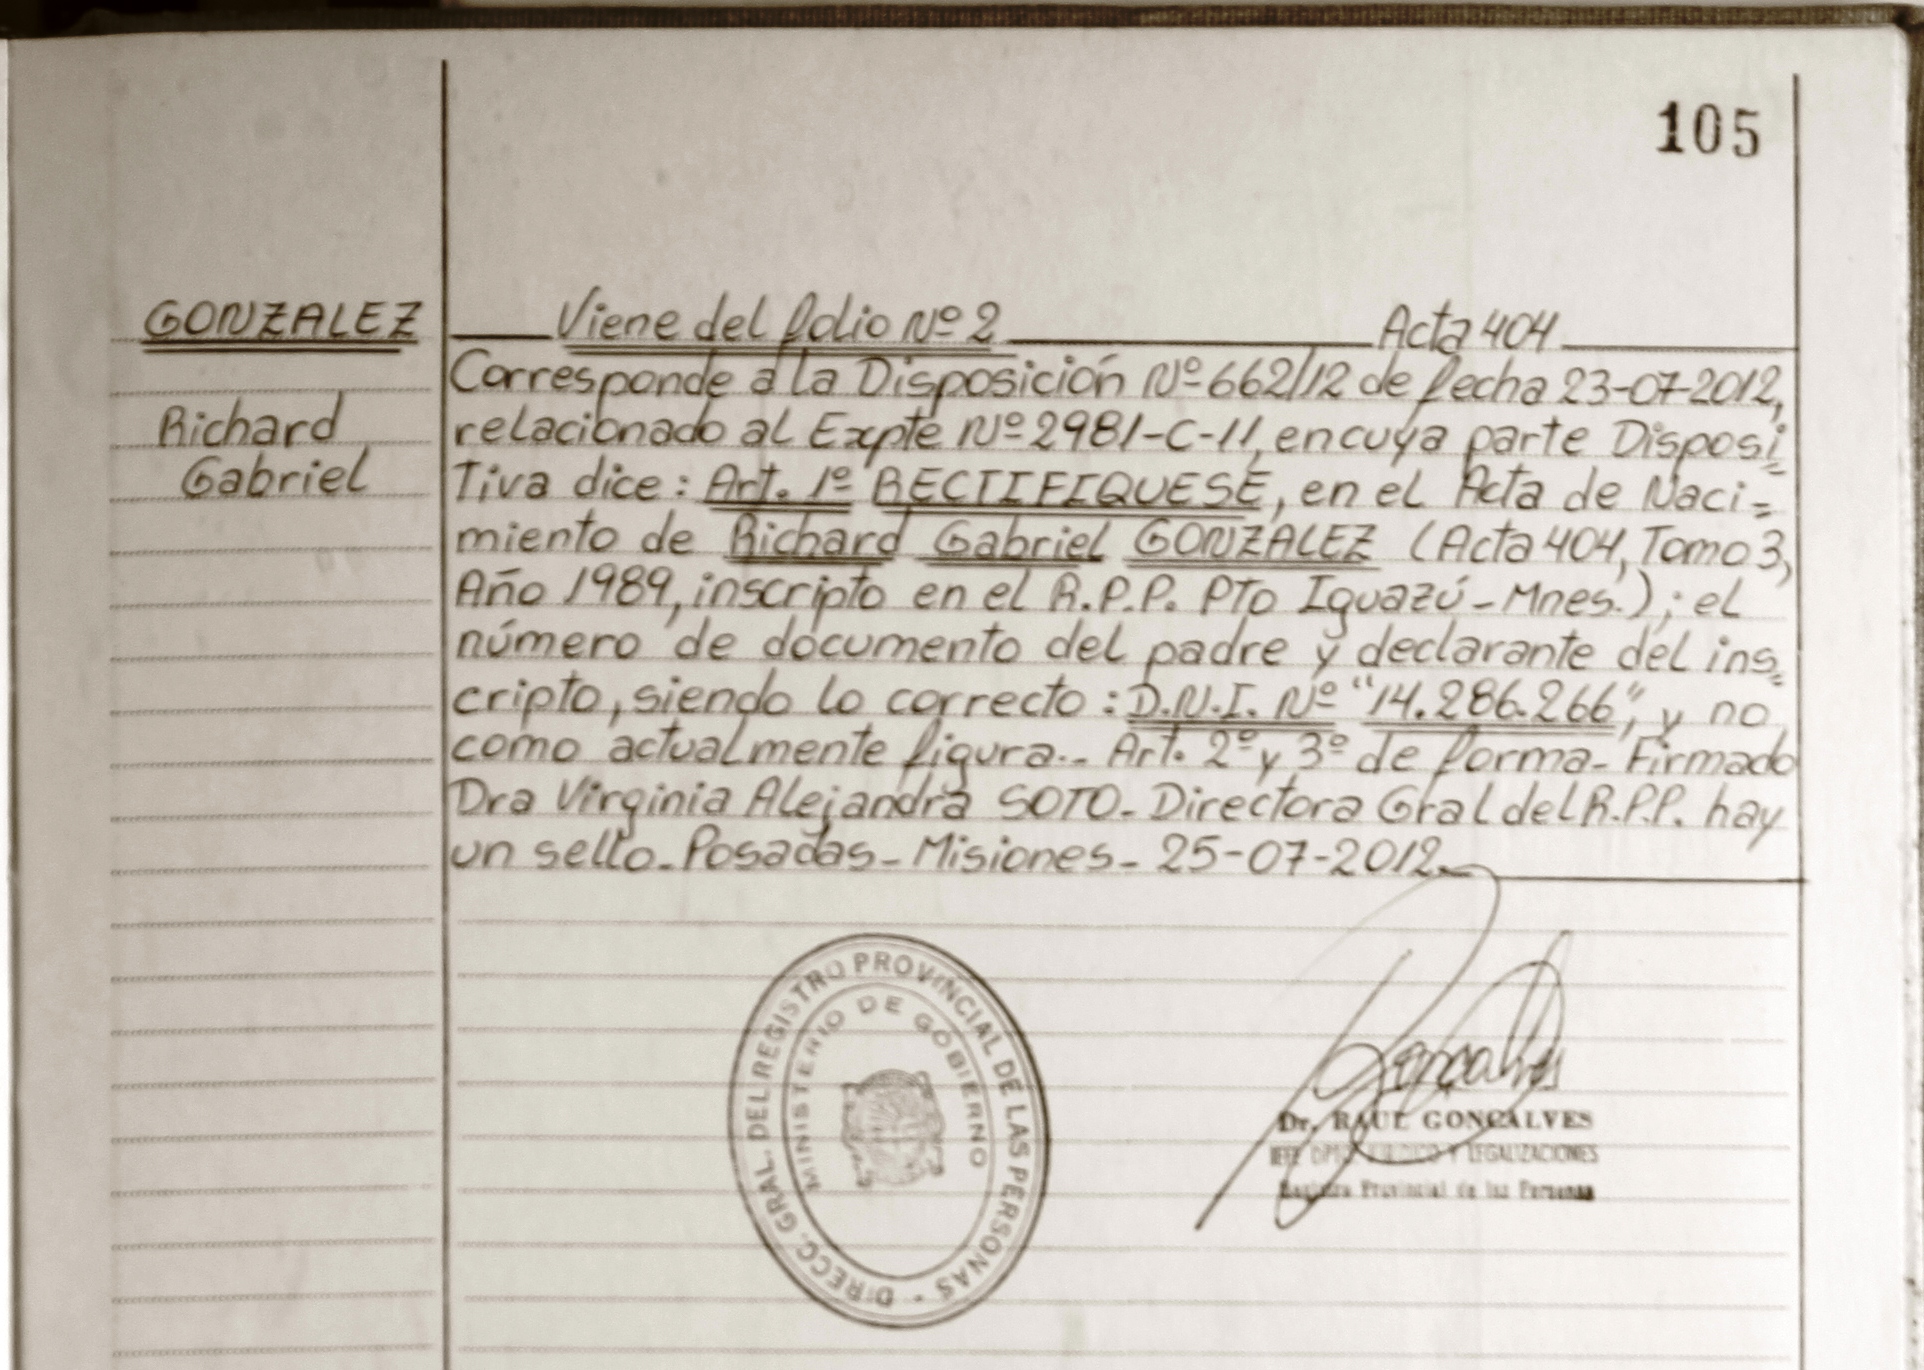 105
GONZALEZ
Richard
Gabriel
Viene del folio Nº 2 Acta 404
Corresponde a la Disposición Nº 662/12 de fecha 23-07-2012,
relacionado al Expte Nº 2981-C-11, en cuya parte Disposi=
Tiva dice: Art. 1º RECTIFIQUESE, en el Acta de Naci-=
miento de Richard Gabriel GONZALEZ (Acta 404, Tomo 3,
Año 1989, inscripto en el R.P.P. PTo Iguazú - Mnes.); el
número de documento del padre y declarante del ins=
cripto, siendo lo correcto: D.N.I. Nº "14.286.266", y no
como actualmente figura.- Art. 2º y 3º de forma - Firmado
Dra Virginia Alejandra SOTO - Directora Gral del R.P.P. hay
un sello - Posadas - Misiones - 25-07-2012-
DIRECC. GRAL. DEL REGISTRO PROVINCIAL DE LAS PERSONAS -
MINISTERIO DE GOBIERNO
Goncalves
Dr. RAUL GONCALVES
JEFE DPTO JURIDICO Y LEGALIZACIONES
Registro Provincial de las Personas